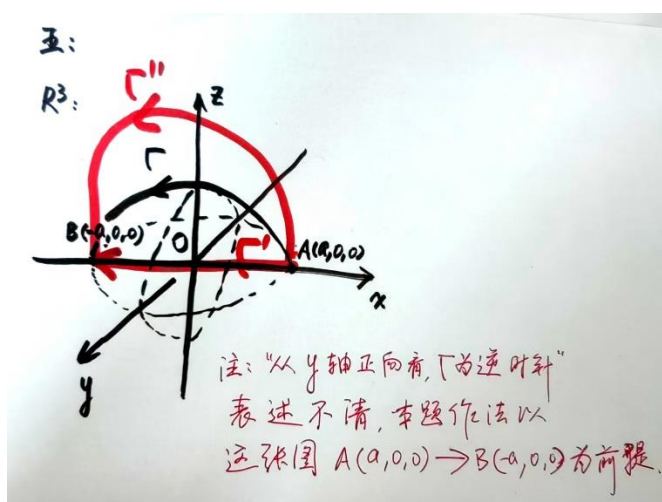 五:
R³:
Γ''
z
Γ
B(-a,0,0)
O
Γ'
A(a,0,0)
x
y
注:“从y轴正向看,Γ为逆时针”
表述不清,本题作法以
这张图 A(a,0,0)→B(-a,0,0)为前提.